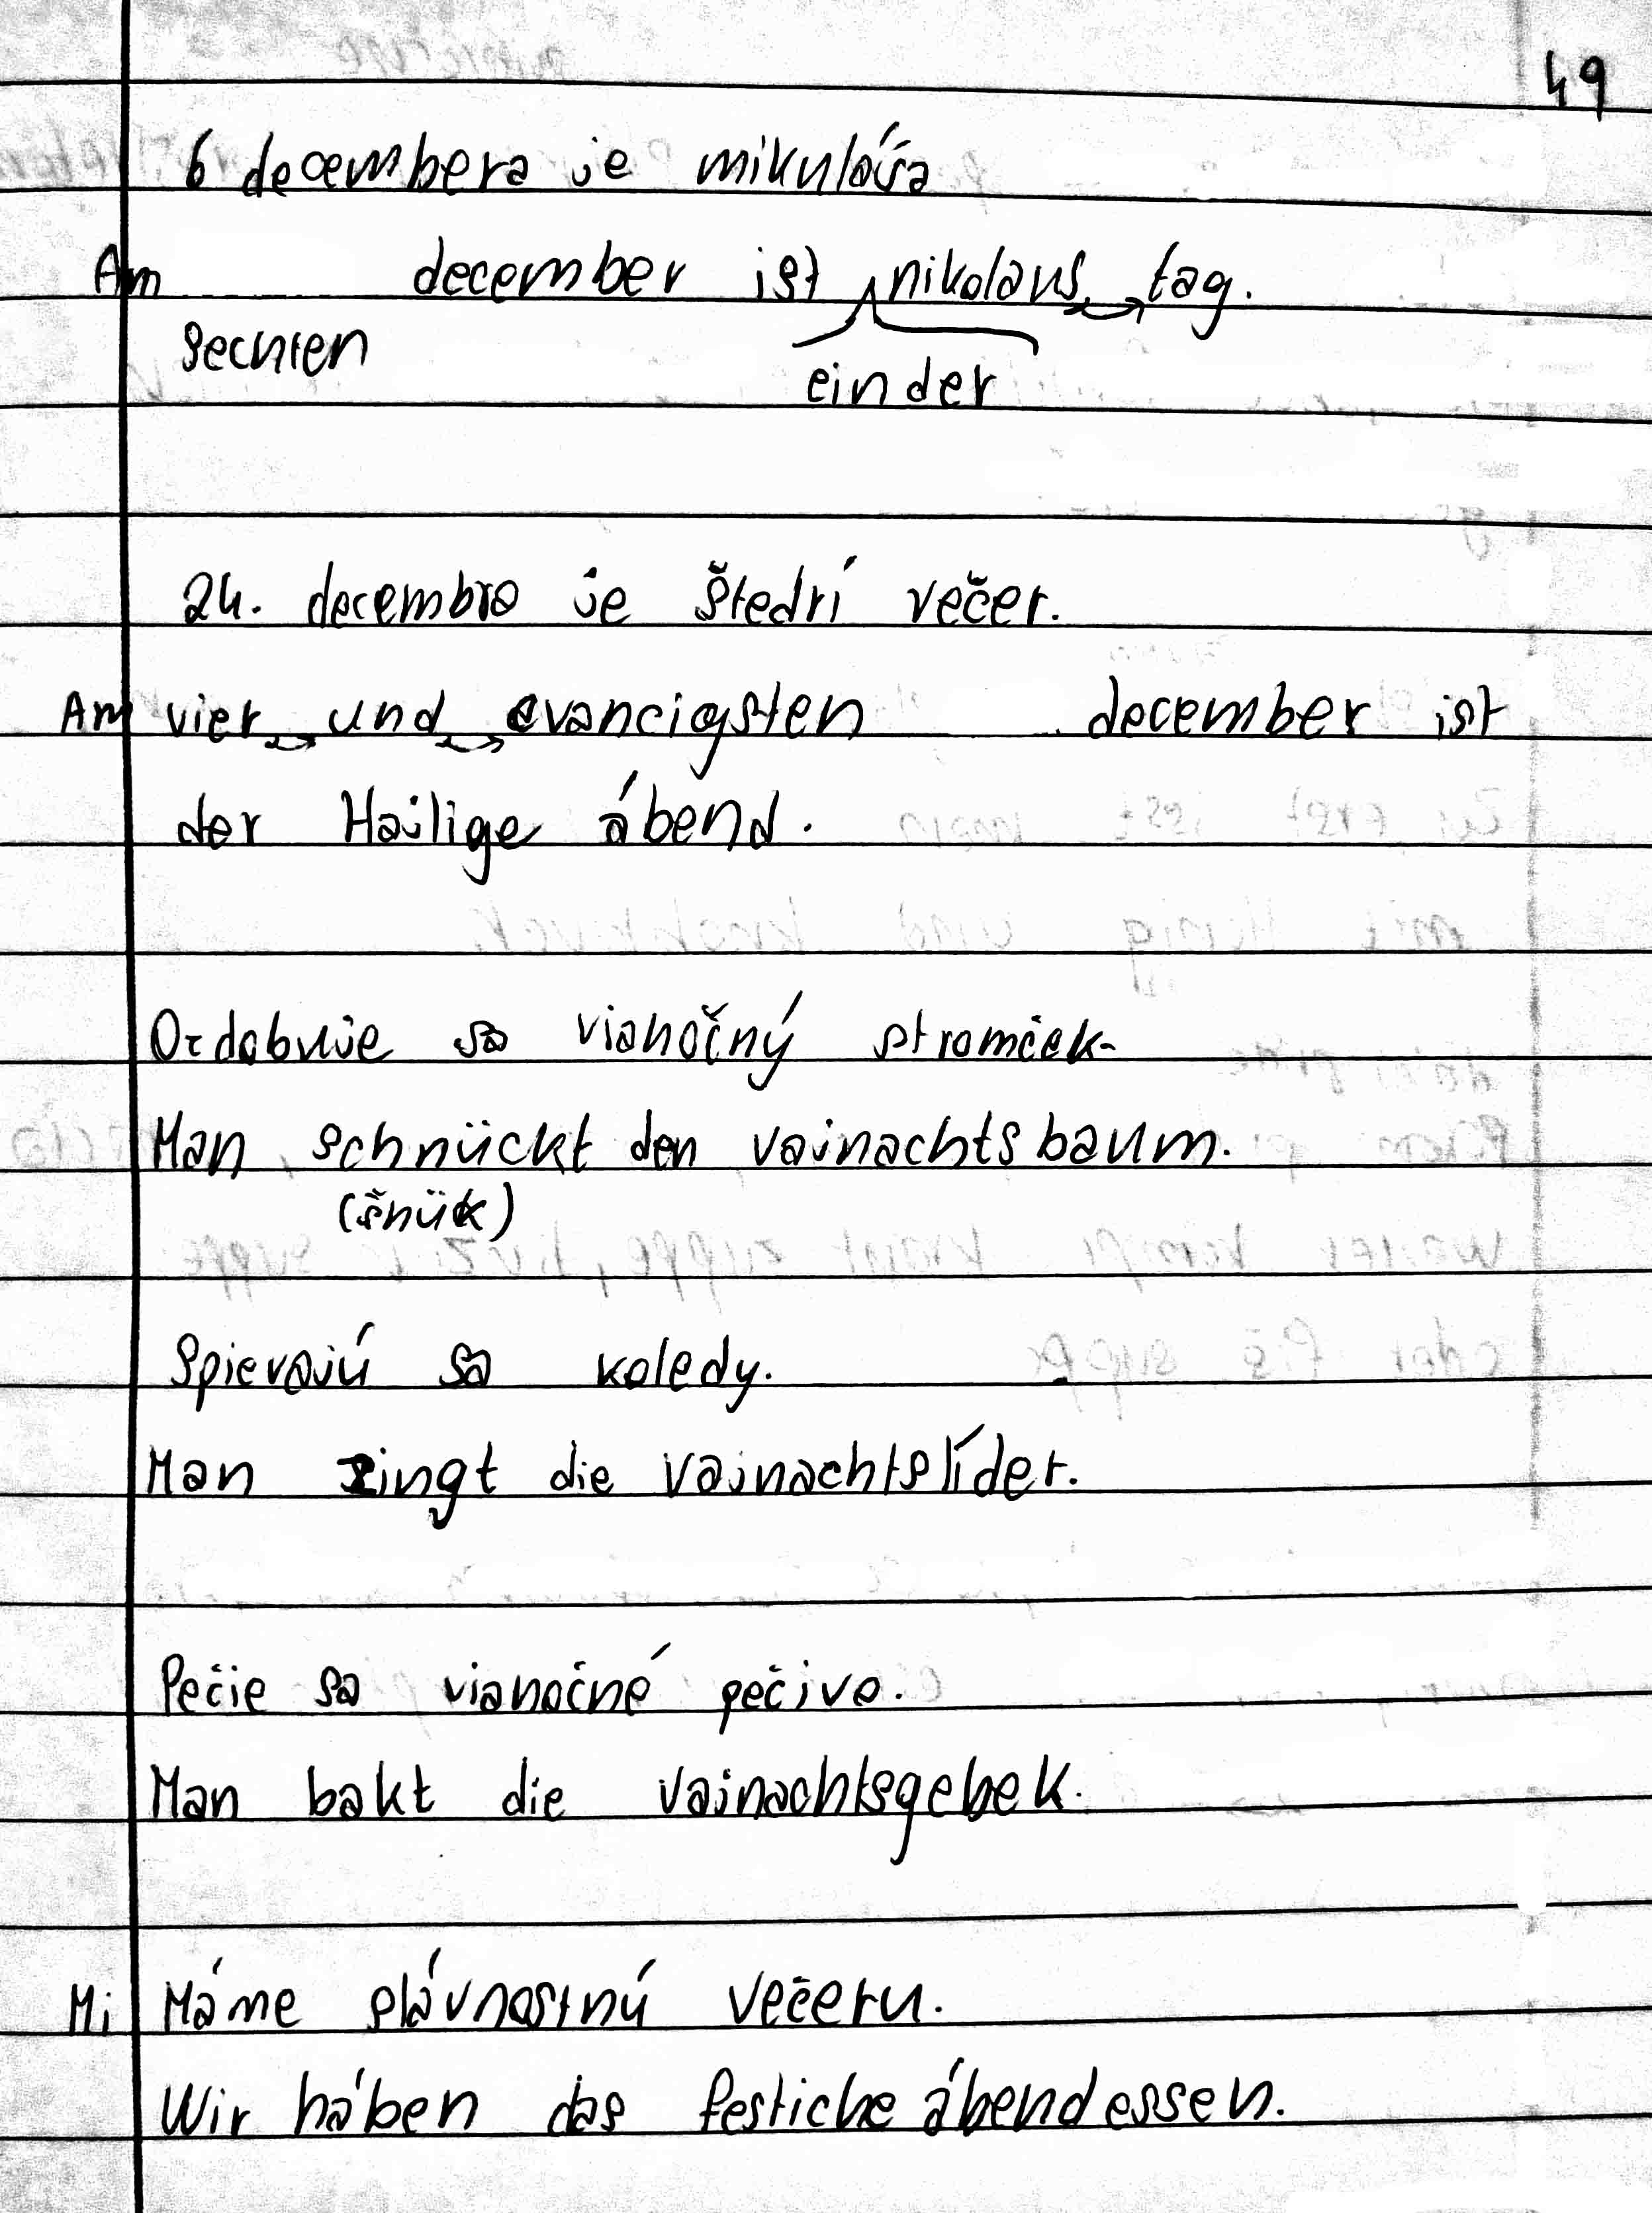 49
6 decembera je mikuláša
Am december ist nikolaus tag.
sechten
ein der
24. decembra je štedrí večer.
Am vier und cvancigsten december ist
der Hailige ábend.
Ozdobuje sa vianočný stromček.
Man schnückt den vajnachtsbaum.
(šnük)
Spievajú sa koledy.
Man zingt die vajnachtslíder.
Pečie sa vianočné pečivo.
Man bakt die vajnachtsgebek.
Mi Máme slávnostnú večeru.
Wir háben das festiche ábendessen.